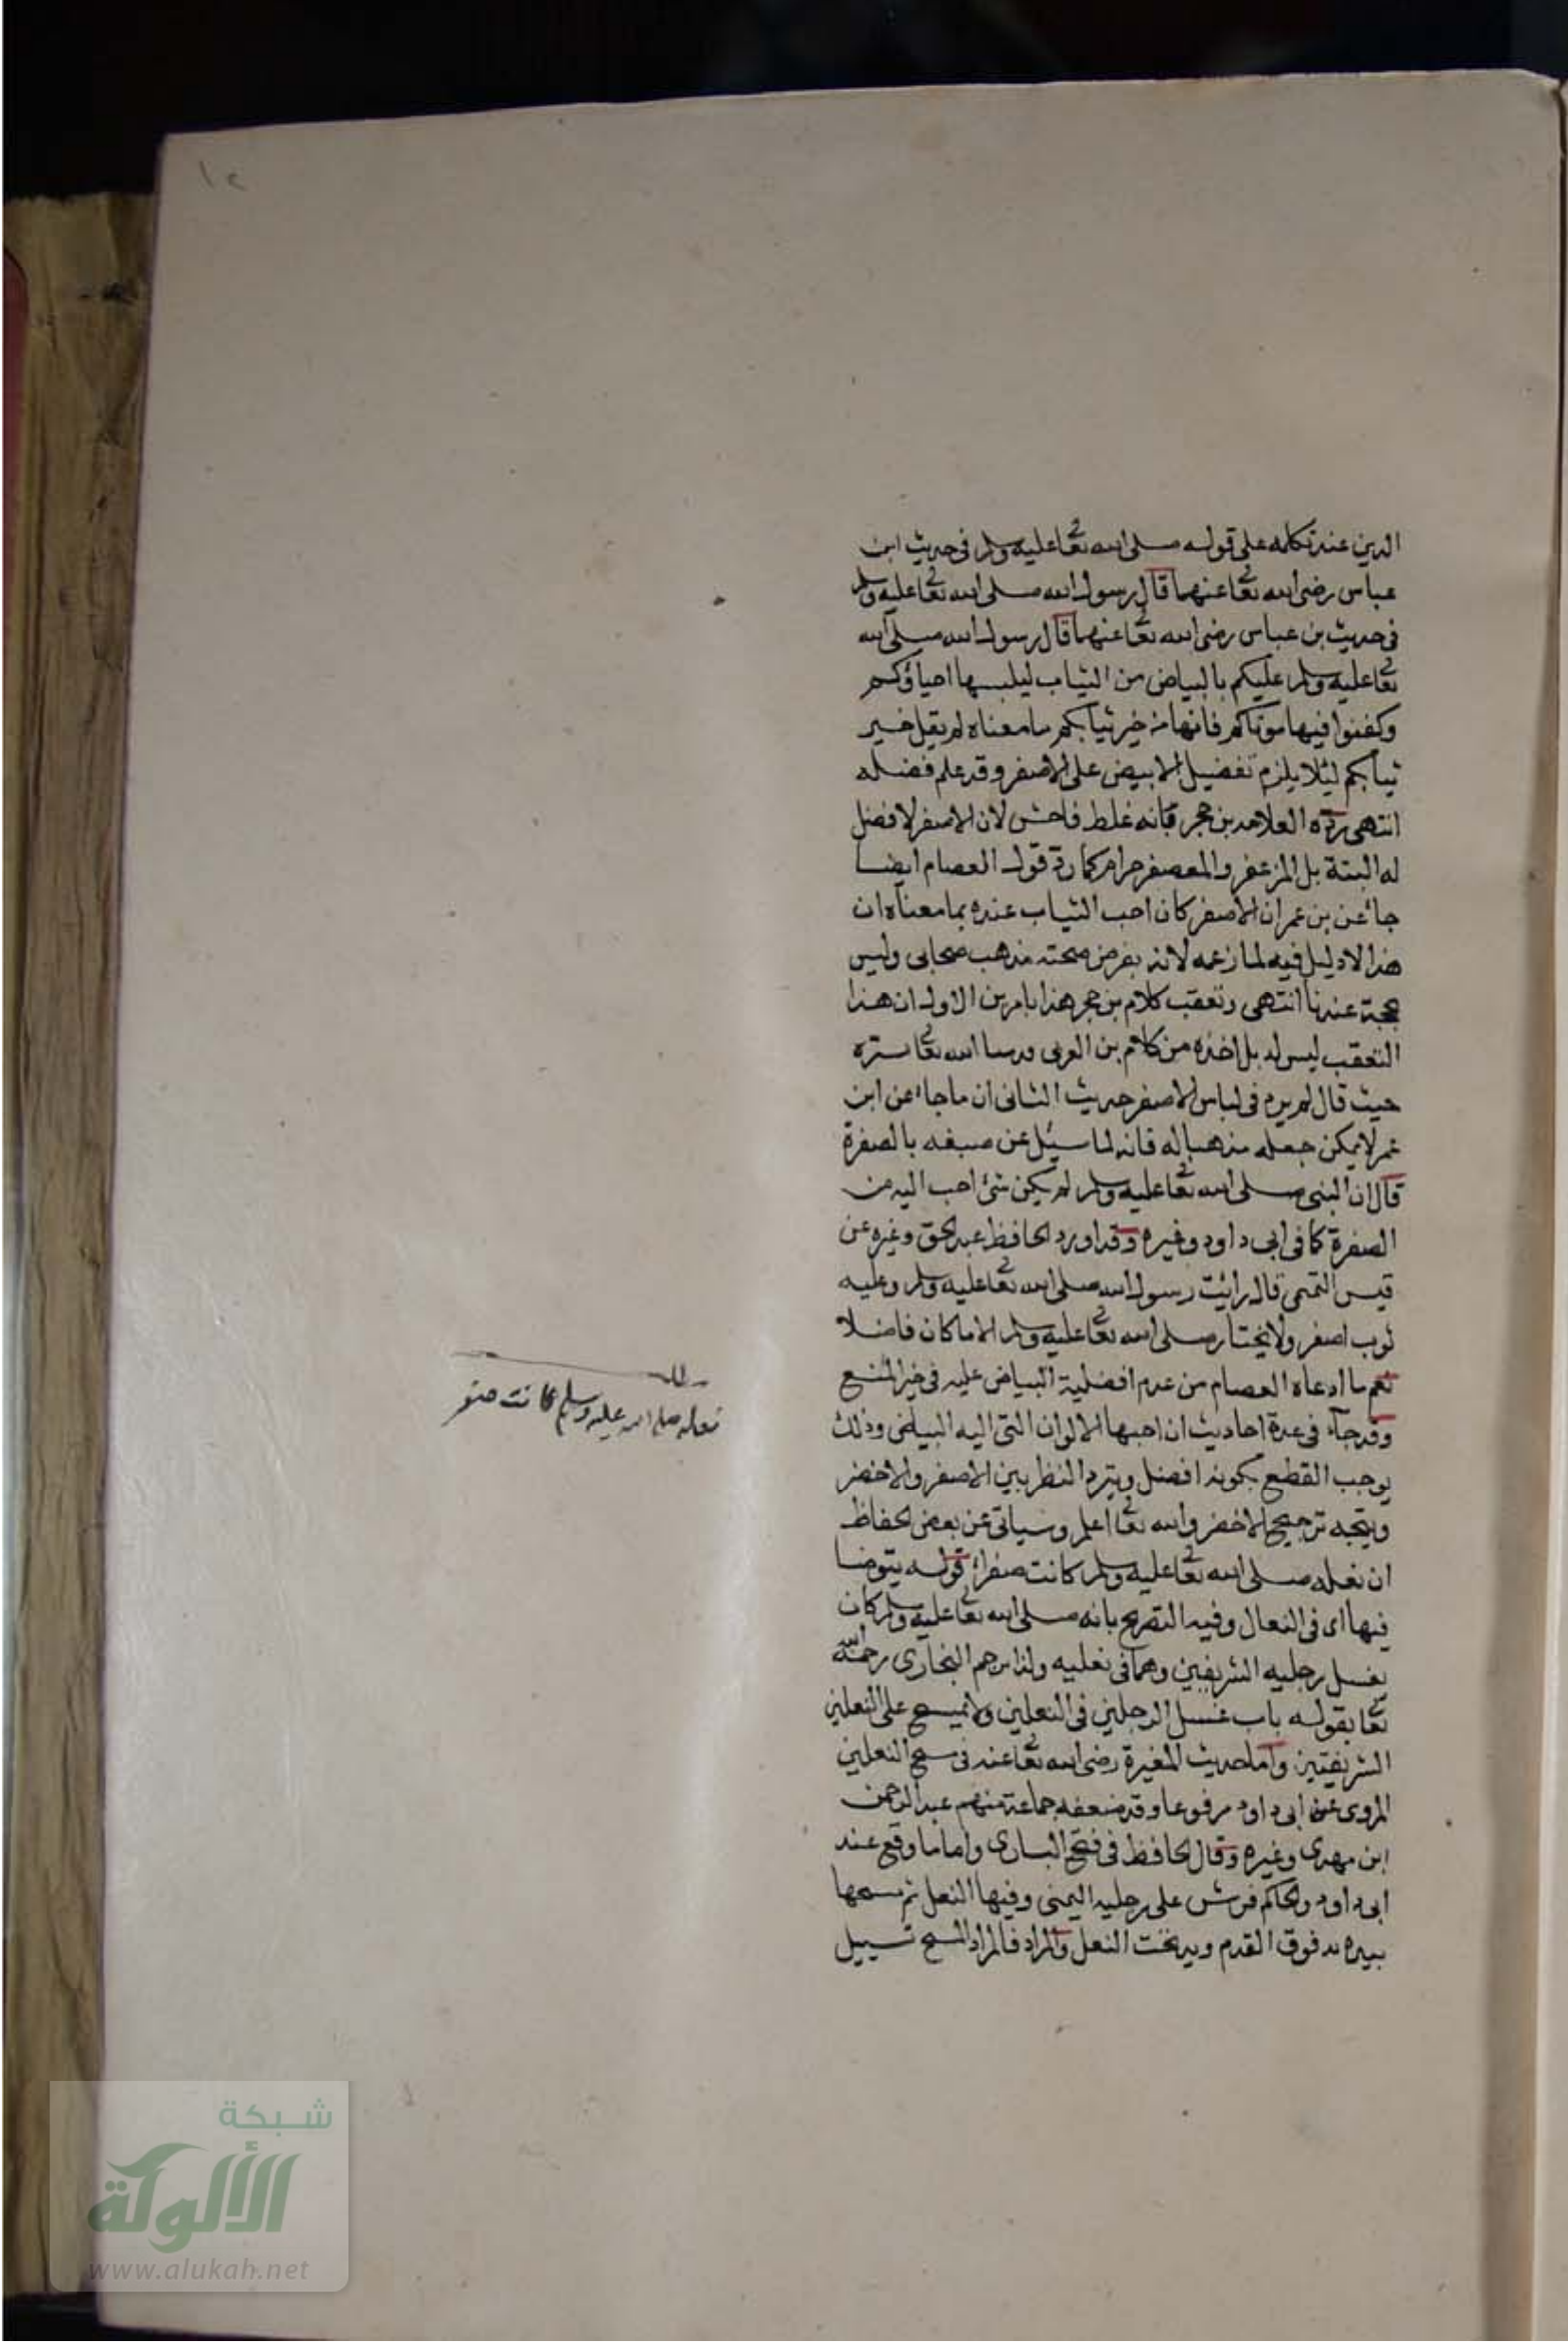 ١٢
الدين عند تكلمه على قوله صلى الله تعا عليه وسلم في حديث ابن
عباس رضى الله تعا عنهما قال رسول الله صلى الله تعا عليه وسلم
في حديث بن عباس رضى الله تعا عنهما قال رسول الله صلى الله
تعا عليه وسلم عليكم بالبياض من الثياب ليلبسها احياؤكم
وكفنوا فيها موتاكم فانها من خير ثيابكم ما معناه لم يقل خير
ثيابكم ليئلا يلزم تفضيل الابيض على الاصفر وقد علم فضله
انتهى رده العلامه بن حجر فانه غلط فاحش لان الاصفر لا فضل
له البتة بل المزعفر والمعصفر حرام كما رد قول العصام ايضا
جاء عن بن عمر ان الاصفر كان احب الثياب عنده بما معناه ان
هذا لا دليل فيه لما زعمه لانه بفرض صحته مذهب صحابى وليس
بحجة عندنا انتهى وتعقب كلام بن حجر هذا بامرين الاول ان هذا
التعقب ليس له بل اخذه من كلام بن العربى قدس الله تعا سره
حيث قال لم يرد في لباس الاصفر حديث الثانى ان ما جاء عن ابن
عمر لا يمكن جعله مذهبا له فانه لما سيئل عن صبغه بالصفرة
قال ان النبى صلى الله تعا عليه وسلم لم يكن شئ احب اليه من
الصفرة كما في ابى داود وغيره وقد اورد الحافظ عبد الحق وغيره عن
قيس التميمى قال رائيت رسول الله صلى الله تعا عليه وسلم وعليه
ثوب اصفر ولا يختار صلى الله تعا عليه وسلم الا ما كان فاضلا
نعم ما ادعاه العصام من عدم افضلية البياض عليه في خير المنع
وقد جاء في عدة احاديث ان احبها الالوان التى اليه البياض وذلك
يوجب القطع بكونه افضل ويترد النظر بين الاصفر والاخضر
ويتجه ترجيح الاخضر والله تعا اعلم وسياتى عن بعض الحفاظ
ان نعله صلى الله تعا عليه وسلم كانت صفراء قوله يتوضا
فيها اى في النعال وفيه التصريح بانه صلى الله تعا عليه وسلم كان
يغسل رجليه الشريفين وهما في نعليه ولذا ترجم البخارى رحمه الله
تعا بقوله باب غسل الرجلين في النعلين ولا يمسح على النعلين
الشريفتين واما حديث المغيرة رضى الله تعا عنه في مسح النعلين
المروى عن ابى داود مرفوعا وقد ضعفه جماعة منهم عبد الرحمن
ابن مهدى وغيره وقال الحافظ في فتح البارى واما ما وقع عند
ابى داود والحاكم فرش على رجليه اليمنى وفيها النعل ثم مسحها
بيديه يد فوق القدم ويد تحت النعل والمراد فالمراد المسح تسييل
مطلب
نعله صلى الله عليه وسلم كانت صفر
شبكة
الألوكة
www.alukah.net